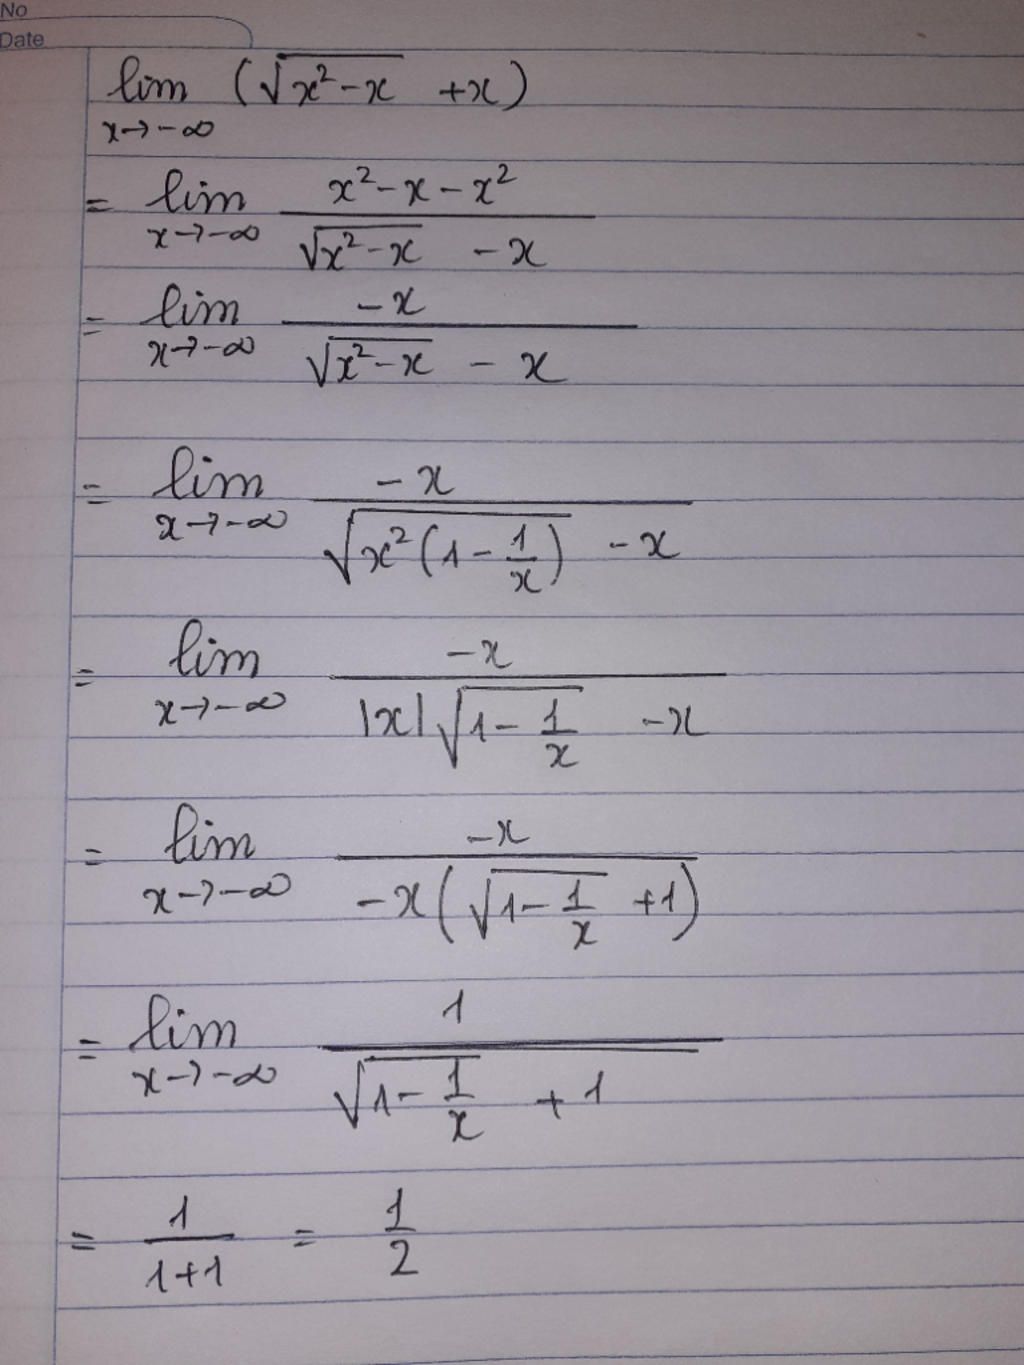 No
Date
lim (√(x² - x) + x)
x→-∞
= lim (x² - x - x²) / (√(x² - x) - x)
x→-∞
= lim (-x) / (√(x² - x) - x)
x→-∞
= lim (-x) / (√(x²(1 - 1/x)) - x)
x→-∞
= lim (-x) / (|x|√(1 - 1/x) - x)
x→-∞
= lim (-x) / (-x(√(1 - 1/x) + 1))
x→-∞
= lim 1 / (√(1 - 1/x) + 1)
x→-∞
= 1/(1+1) = 1/2